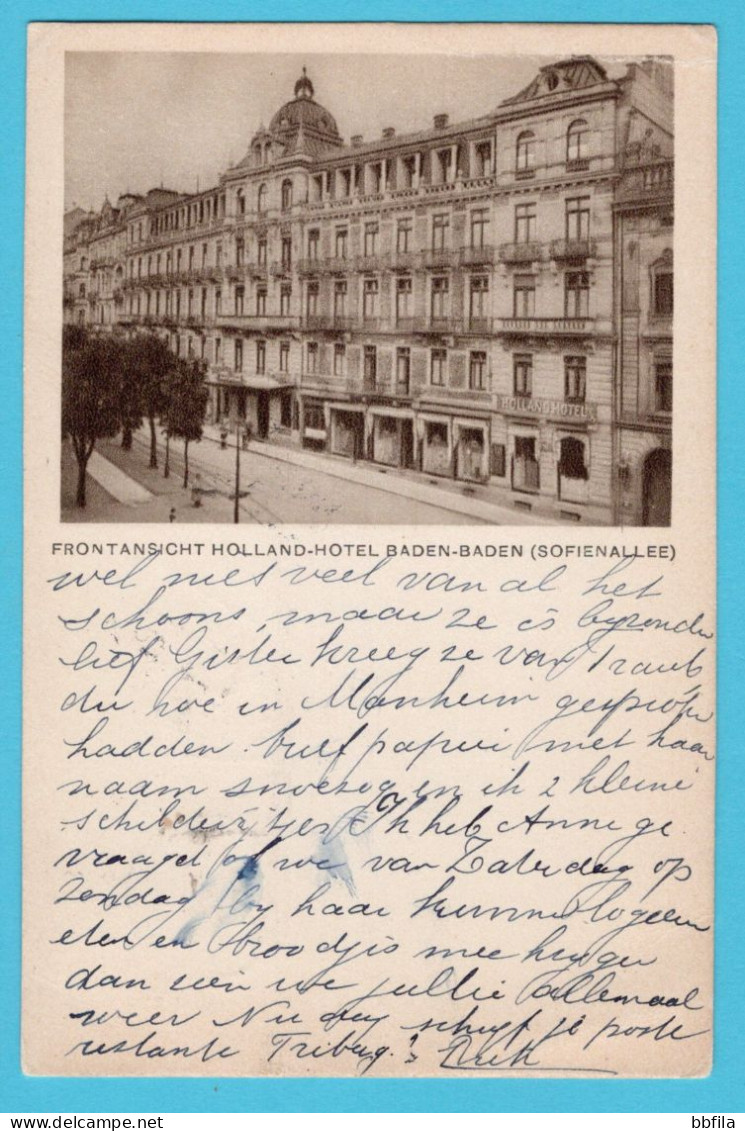 HOLLAND HOTEL
FRONTANSICHT HOLLAND-HOTEL BADEN-BADEN (SOFIENALLEE)
wel niet veel van al het
schoons, maar ze is byzonder
lief Gister kreeg ze van Traub,
die we in Manheim gesproken
hadden brief papier met haar
naam snoezig en ik 2 kleine
schilderijtjes Ik heb Annie ge
vraagd of we van Zaterdag op
Zondag by haar kunnen logeeren
eten en broodjes mee krijgen
dan zien we jullie allemaal
weer Nu dag schryf je poste
restante Triberg?
bbfila